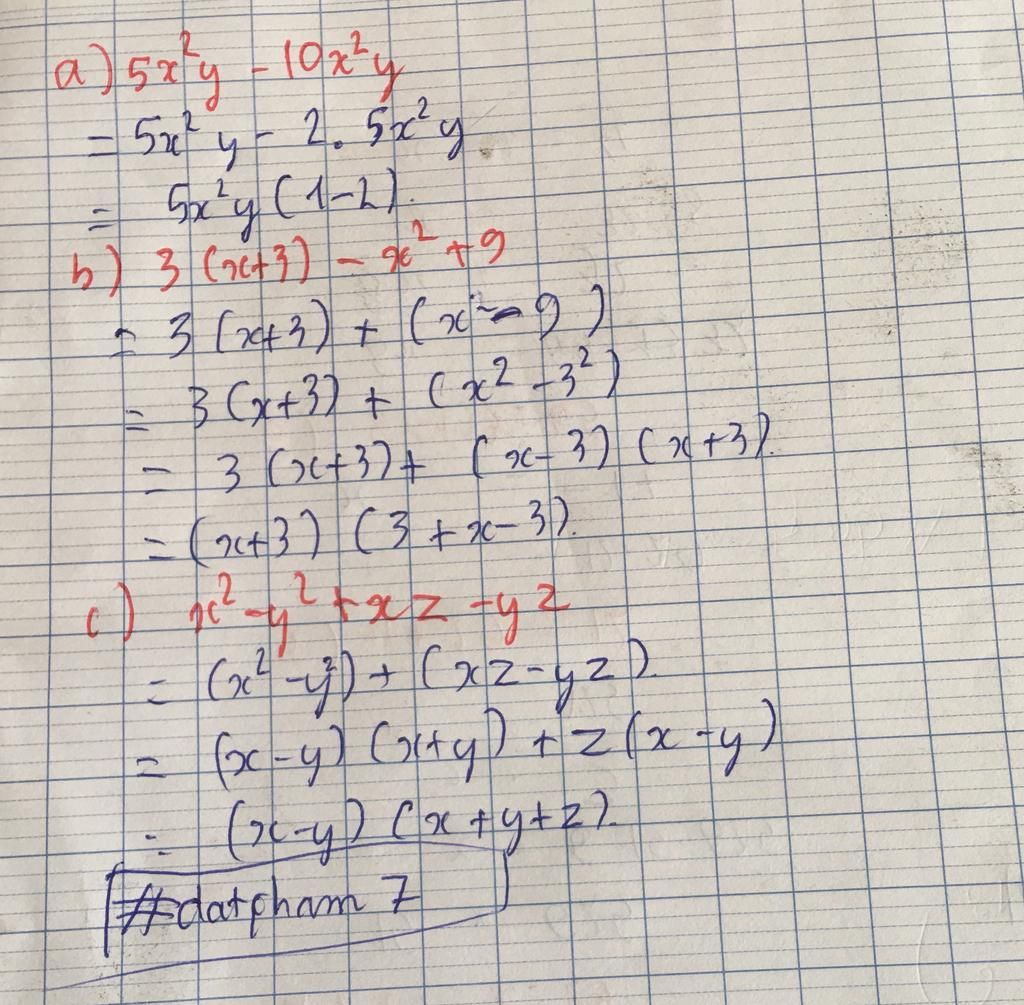 a) 5x²y - 10x²y
= 5x²y - 2. 5x²y
= 5x²y (1-2).
b) 3 (x+3) - x² + 9
= 3 (x+3) + (x² - 9)
= 3 (x+3) + (x² - 3²)
= 3 (x+3) + (x-3) (x+3).
= (x+3) (3 + x - 3).
c) x² - y² + xz - yz
= (x² - y²) + (xz - yz).
= (x-y) (x+y) + z (x-y)
= (x-y) (x+y+z).
#datpham 7